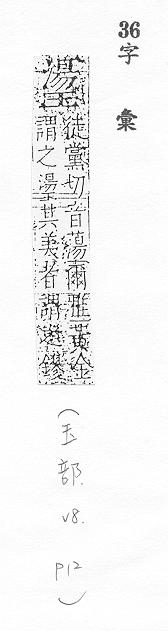 36
字彙
璗
徒黨切音蕩爾雅黃金
謂之璗其美者謂鏐
(玉部. v8. p12)